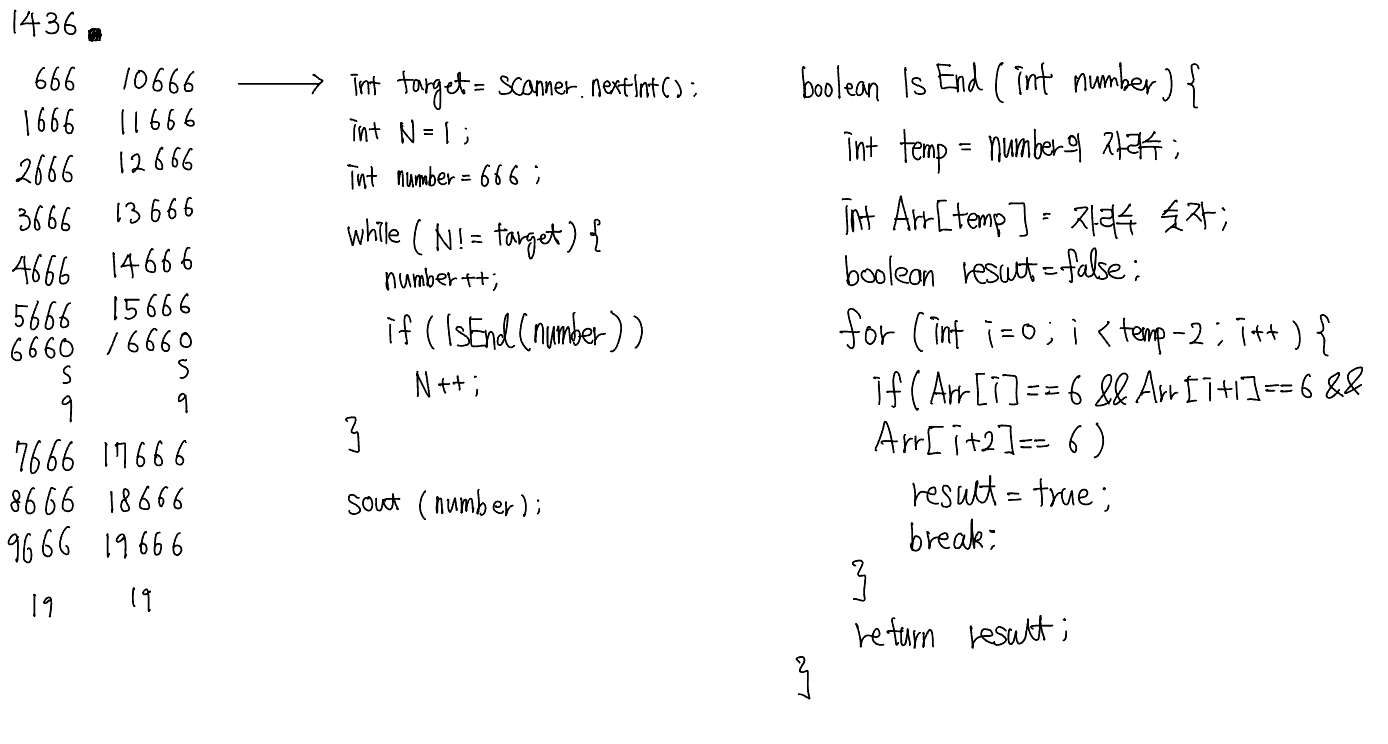 1436.
666 10666
1666 11666
2666 12666
3666 13666
4666 14666
5666 15666
6660 16660
S S
9 9
7666 17666
8666 18666
9666 19666
19 19
int target = scanner.nextInt();
int N = 1;
int number = 666;
while (N != target) {
number++;
if (IsEnd(number))
N++;
}
sout (number);
boolean Is End (int number) {
int temp = number의 자리수;
int Arr[temp] = 자리수 숫자;
boolean result = false;
for (int i=0; i < temp-2; i++) {
if (Arr[i]==6 && Arr[i+1]==6 &&
Arr[i+2]== 6)
result = true;
break;
}
return result;
}